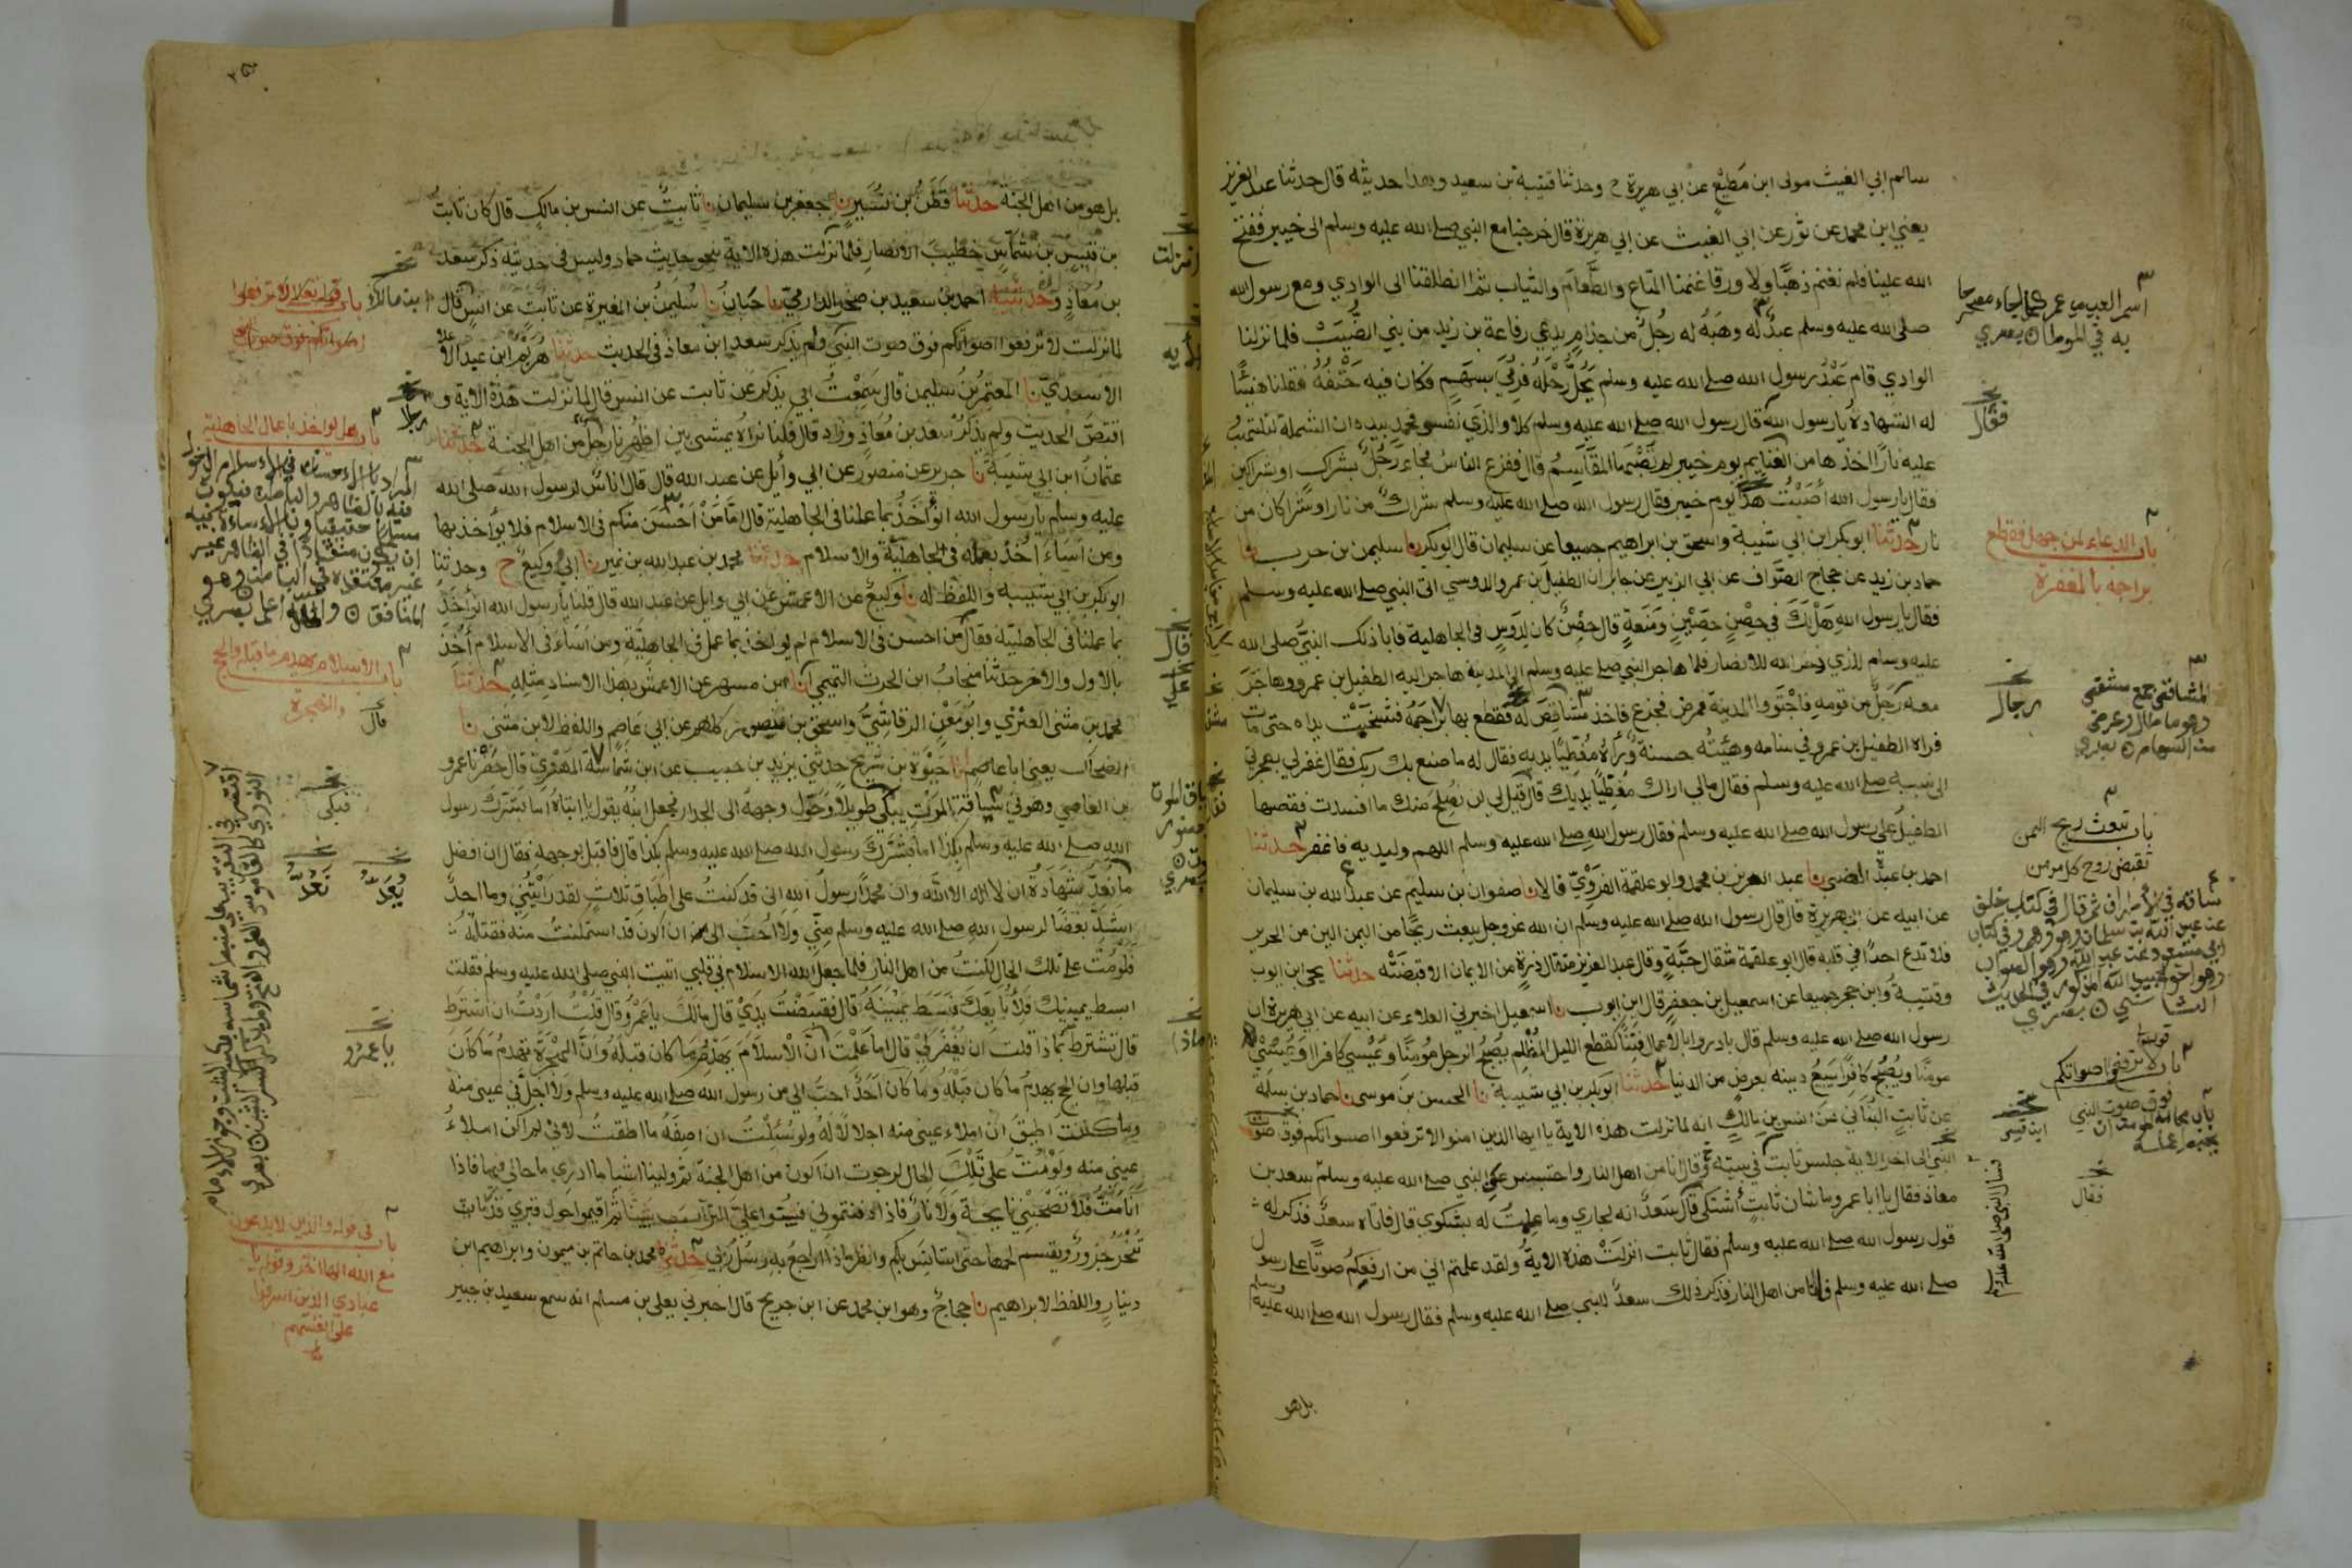 سالم ابي الغيث مولى ابن مطيع عن ابي هريرة ح وحدثنا قتيبة بن سعيد وهذا حديثه قال حدثنا عبد العزيز
يعني ابن محمد عن ثور عن ابي الغيث عن ابي هريرة قال خرجنا مع النبي صلى الله عليه وسلم الى خيبر ففتح
الله علينا فلم نغنم ذهبا ولا ورقا غنمنا المتاع والطعام والثياب ثم انطلقنا الى الوادي ومع رسول الله
صلى الله عليه وسلم عبد له وهبه له رجل من جذام يدعى رفاعة بن زيد من بني الضبيب فلما نزلنا
الوادي قام عبد رسول الله صلى الله عليه وسلم يحل رحله فرمي بسهم فكان فيه حتفه فقلنا هنيئا
له الشهادة يا رسول الله قال رسول الله صلى الله عليه وسلم كلا والذي نفس محمد بيده ان الشملة لتلتهب
عليه نارا اخذها من الغنايم يوم خيبر لم تصبها المقاسم قال ففزع الناس فجاء رجل بشراك او شراكين
فقال يا رسول الله اصبت هذا يوم خيبر فقال رسول الله صلى الله عليه وسلم شراك من نار او شراكان من
نار حدثنا ابو بكر ابن ابي شيبة واسحق بن ابراهيم جميعا عن سليمان قال ابو بكر نا سليمن بن حرب نا
حماد بن زيد عن حجاج الصواف عن ابي الزبير عن جابر ان الطفيل بن عمرو الدوسي اتى النبي صلى الله عليه وسلم
فقال يا رسول الله هل لك في حصن حصين ومنعة قال حصن كان لدوس في الجاهلية فابا ذلك النبي صلى الله
عليه وسلم للذي ذخر الله للانصار فلما هاجر النبي صلى الله عليه وسلم الى المدينة هاجر اليه الطفيل بن عمرو وهاجر
معه رجل من قومه فاجتووا المدينة فمرض فجزع فاخذ مشاقص له فقطع بها براجمه فشخبت يداه حتى مات
فراه الطفيل بن عمرو في منامه وهيئته حسنة وراه مغطيا يديه فقال له ما صنع بك ربك فقال غفر لي بهجرتي
الى نبيه صلى الله عليه وسلم فقال مالي اراك مغطيا يديك قال قيل لي لن نصلح منك ما افسدت فقصها
الطفيل على رسول الله صلى الله عليه وسلم فقال رسول الله صلى الله عليه وسلم اللهم وليديه فاغفر حدثنا
احمد بن عبدة الضبي نا عبد العزيز بن محمد وابو علقمة الفروي قالا نا صفوان بن سليم عن عبد الله بن سليمان
عن ابيه عن ابي هريرة قال قال رسول الله صلى الله عليه وسلم ان الله عز وجل يبعث ريحا من اليمن الين من الحرير
فلا تدع احدا في قلبه قال ابو علقمة مثقال حبة وقال عبد العزيز مثقال ذرة من الايمان الا قبضته حدثنا يحيى ابن ايوب
وقتيبة وابن حجر جميعا عن اسمعيل بن جعفر قال ابن ايوب نا اسمعيل اخبرني العلاء عن ابيه عن ابي هريرة ان
رسول الله صلى الله عليه وسلم قال بادروا بالاعمال فتنا كقطع الليل المظلم يصبح الرجل مومنا ويمسي كافرا او يمسي
مومنا ويصبح كافرا يبيع دينه بعرض من الدنيا حدثنا ابو بكر بن ابي شيبة نا الحسن بن موسى نا حماد بن سلمة
عن ثابت البناني عن انس بن مالك انه لما نزلت هذه الاية يا ايها الذين امنوا لا ترفعوا اصواتكم فوق صوت
النبي الى اخر الاية جلس ثابت في بيته وقال انا من اهل النار واحتبس عن النبي صلى الله عليه وسلم سعد بن
معاذ فقال يا ابا عمرو ما شان ثابت أشتكى قال سعد انه لجاري وما علمت له بشكوى قال فاتاه سعد فذكر له
قول رسول الله صلى الله عليه وسلم فقال ثابت انزلت هذه الاية ولقد علمتم اني من ارفعكم صوتا على رسول
صلى الله عليه وسلم فانا من اهل النار فذكر ذلك سعد للنبي صلى الله عليه وسلم فقال رسول الله صلى الله عليه وسلم
بل هو
باب الدعاء لمن جهل فقطع
براجمه بالمغفرة
رجال
المشاقص جمع مشقص
وهو ما طال وعرض
من السهام
باب تبعث ريح اليمن
تقبض روح كل مومن
باب لا ترفعوا اصواتكم
فوق صوت النبي
فقال
بل هو من اهل الجنة حدثنا قطن بن نسير نا جعفر بن سليمان نا ثابت عن انس بن مالك قال كان ثابت
بن قيس بن شماس خطيب الانصار فلما نزلت هذه الاية بنحو حديث حماد وليس في حديثه ذكر سعد
بن معاذ وحدثنيه احمد بن سعيد بن صخر الدارمي نا حبان نا سليمن بن المغيرة عن ثابت عن انس قال
لما نزلت لا ترفعوا اصواتكم فوق صوت النبي ولم يذكر سعد ابن معاذ في الحديث حدثنا هريم ابن عبد الاعلى
الاسدي نا المعتمر بن سليمن قال سمعت ابي يذكر عن ثابت عن انس قال لما نزلت هذه الاية و
اقتص الحديث ولم يذكر سعد بن معاذ وزاد قال فكنا نراه يمشي بين اظهرنا رجل من اهل الجنة حدثنا
عثمان ابن ابي شيبة نا جرير عن منصور عن ابي وايل عن عبد الله قال قال اناس لرسول الله صلى الله
عليه وسلم يا رسول الله انواخذ بما عملنا في الجاهلية قال اما من احسن منكم في الاسلام فلا يواخذ بها
ومن اساء اخذ بعمله في الجاهلية والاسلام حدثنا محمد بن عبد الله بن نمير نا ابي ووكيع ح وحدثنا
ابو بكر بن ابي شيبة واللفظ له نا وكيع عن الاعمش عن ابي وايل عن عبد الله قال قلنا يا رسول الله انواخذ
بما عملنا في الجاهلية فقال من احسن في الاسلام لم يواخذ بما عمل في الجاهلية ومن اساء في الاسلام اخذ
بالاول والاخر حدثنا منجاب ابن الحرث التميمي انا ابن مسهر عن الاعمش بهذا الاسناد مثله حدثنا
محمد بن مثنى العنزي وابو معن الرقاشي واسحق بن منصور كلهم عن ابي عاصم واللفظ لابن مثنى نا
الضحاك يعني ابا عاصم انا حيوة بن شريح حدثني يزيد بن حبيب عن ابن شماسة المهري قال حضرنا عمرو
بن العاصي وهو في سياقة الموت يبكي طويلا وحول وجهه الى الجدار فجعل ابنه يقول يا ابتاه اما بشرك رسول
الله صلى الله عليه وسلم بكذا اما بشرك رسول الله صلى الله عليه وسلم بكذا قال فاقبل بوجهه فقال ان افضل
ما نعد شهادة ان لا اله الا الله وان محمدا رسول الله اني قد كنت على اطباق ثلاث لقد رايتني وما احد
اشد بغضا لرسول الله صلى الله عليه وسلم مني ولا احب الي من ان اكون قد استمكنت منه فقتلته
فلو مت على تلك الحال لكنت من اهل النار فلما جعل الله الاسلام في قلبي اتيت النبي صلى الله عليه وسلم فقلت
ابسط يمينك فلابايعك فبسط يمينه قال فقبضت يدي قال مالك يا عمرو قال قلت اردت ان اشترط
قال تشترط بماذا قلت ان يغفر لي قال اما علمت ان الاسلام يهدم ما كان قبله وان الهجرة تهدم ما كان
قبلها وان الحج يهدم ما كان قبله وما كان احد احب الي من رسول الله صلى الله عليه وسلم ولا اجل في عيني منه
وما كنت اطيق ان املاء عيني منه اجلالا له ولو سئلت ان اصفه ما اطقت لاني لم اكن املاء
عيني منه ولو مت على تلك الحال لرجوت ان اكون من اهل الجنة ثم ولينا اشيا ما ادري ما حالي فيها فاذا
انا مت فلا تصحبني نايحة ولا نار فاذا دفنتموني فسنوا علي التراب سنا ثم اقيموا حول قبري قدر ما
تنحر جزور ويقسم لحمها حتى استانس بكم وانظر ماذا اراجع به رسل ربي حدثنا محمد بن حاتم بن ميمون وابراهيم ابن
دينار واللفظ لابراهيم نا حجاج وهو ابن محمد عن ابن جريج قال اخبرني يعلى بن مسلم انه سمع سعيد بن جبير
باب قوله تعالى لا ترفعوا
اصواتكم فوق صوت النبي
باب هل يواخذ باعمال الجاهلية
باب الاسلام يهدم ما قبله والحج
والهجرة
قال
فبكى
يا عمرو
باب في قوله والذين لا يدعون
مع الله الها اخر وقوله يا
عبادي الذين اسرفوا
على انفسهم